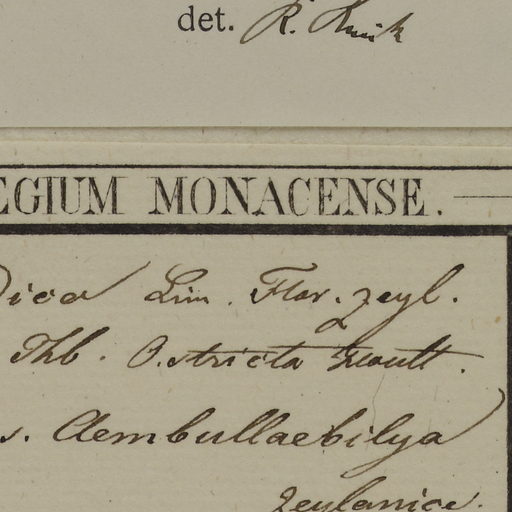 det. R. Knuth
EGIUM MONACENSE.
Lin. Flor. zeyl.
Thb. O. stricta Houtt.
s. Aembullaebilya
zeylanice.